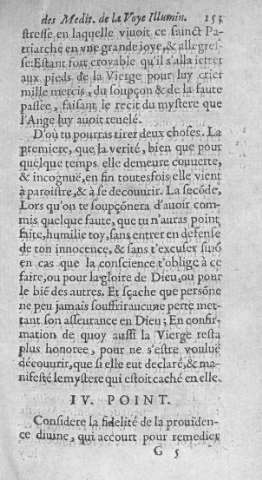 des Medit. de la Voye Illumin. 153
stresse en laquelle viuoit ce sainct Pa-
triarche en vne grande joye, & allegres-
se: Estant fort croyable qu'il s'alla ietter
aux pieds de la Vierge pour luy crier
mille mercis, du soupçon & de la faute
passée, faisant le recit du mystere que
l'Ange luy auoit reuelé.
D'où tu pourras tirer deux choses. La
premiere, que la verité, bien que pour
quelque temps elle demeure couuerte,
& incognuë, en fin toutesfois elle vient
à paroistre, & à se decouurir. La secōde,
Lors qu'on te soupçōnera d'auoir com-
mis quelque faute, que tu n'auras point
faite, humilie toy, sans entrer en defense
de ton innocence, & sans t'excuser sinō
en cas que la conscience t'oblige à ce
faire, ou pour la gloire de Dieu, ou pour
le biē des autres. Et sçache que persōne
ne peu jamais souffrir aucune perte met-
tant son asseurance en Dieu; En confir-
mation de quoy aussi la Vierge resta
plus honoree, pour ne s'estre voulue
découurir, que si elle eut declaré, & ma-
nifesté le mystere qui estoit caché en elle.
IV. POINT.
Considere la fidelité de la prouiden-
ce diuine, qui accourt pour remedier
G 5